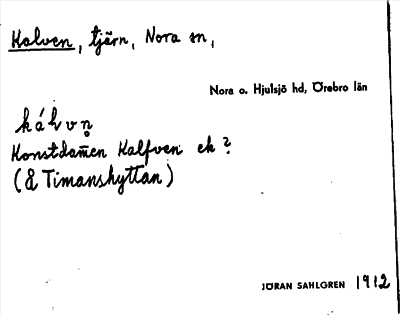 Kalven, tjärn, Nora sn,
Nora o. Hjulsjö hd, Örebro län
kálvn̥
Konstdam̅en Kalfven ek?
(& Timanshyttan)
JÖRAN SAHLGREN 1912